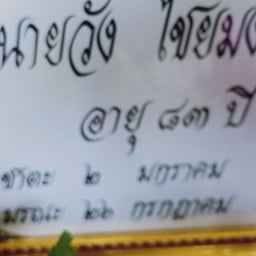 นายวัง ไชยมง
อายุ ๘๓ ปี
ชาตะ ๒ มกราคม
มรณะ ๒๖ กรกฎาคม